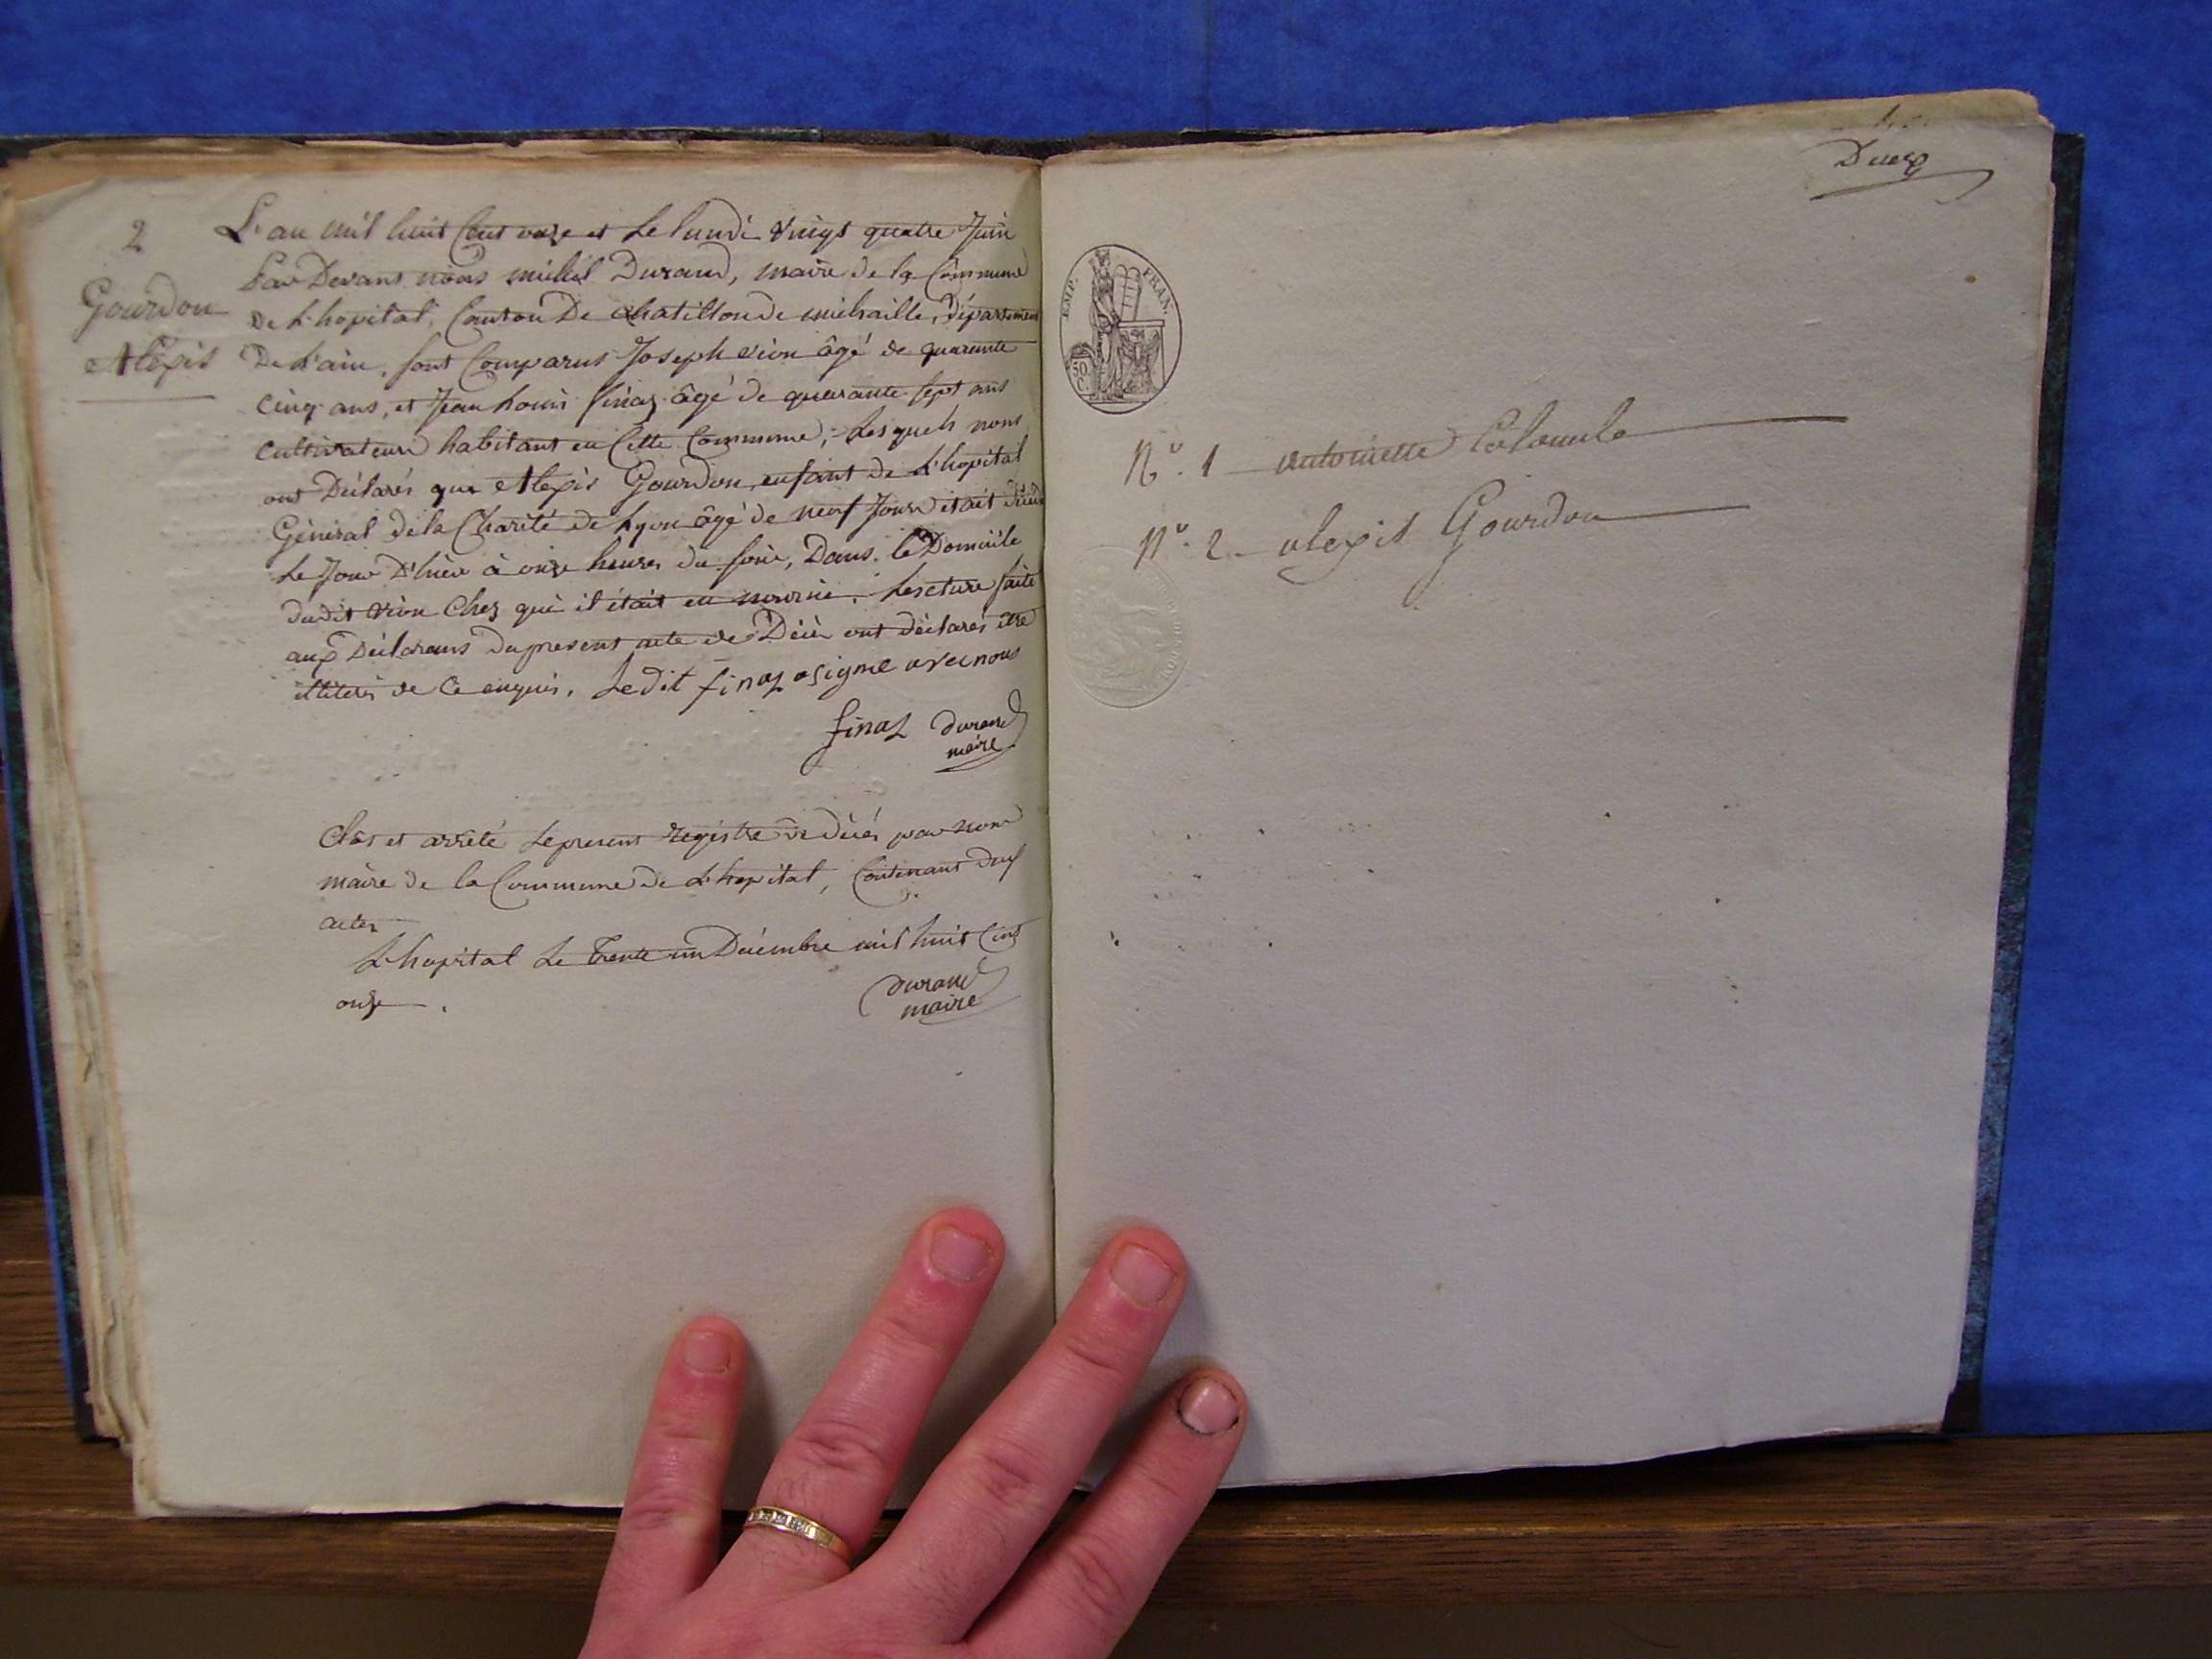 2
Gourdon
Alexis
L'an mil huit Cent onze et le lundi vingt quatre Juin
Par Devant nous michel Durand, maire de la Commune
de L'hopital, Canton De chatillon de michaille, département
De L'ain, sont Comparus Joseph vion âgé de quarante
cinq ans, et Jean Louis finaz âgé de quarante sept ans
cultivateurs habitant en Cette Commune, Lesquels nous
ont Déclarés que Alexis Gourdon, enfant de L'hopital
Général de la Charité de Lyon âgé de neuf Jours était décédé
Le Jour D'hier à onze heures du soir, Dans le Domicile
dudit vion Chez qui il était en nourrice. Lescture faite
aux Déclarans du present acte de Décès ont déclarés être
illiterés de ce enquis. Ledit finaz a signé avec nous
finaz durand
maire
Clos et arrêté Le present registre de décès par nous
maire de la Commune de L'hopital, Contenant deux
actes
L'hopital Le Trente un Décembre mil huit Cent
onze .
durand
maire
EMP. FRAN.
50
C.
N.º 1 antoinette Colomb
N.º 2 alexis Gourdon